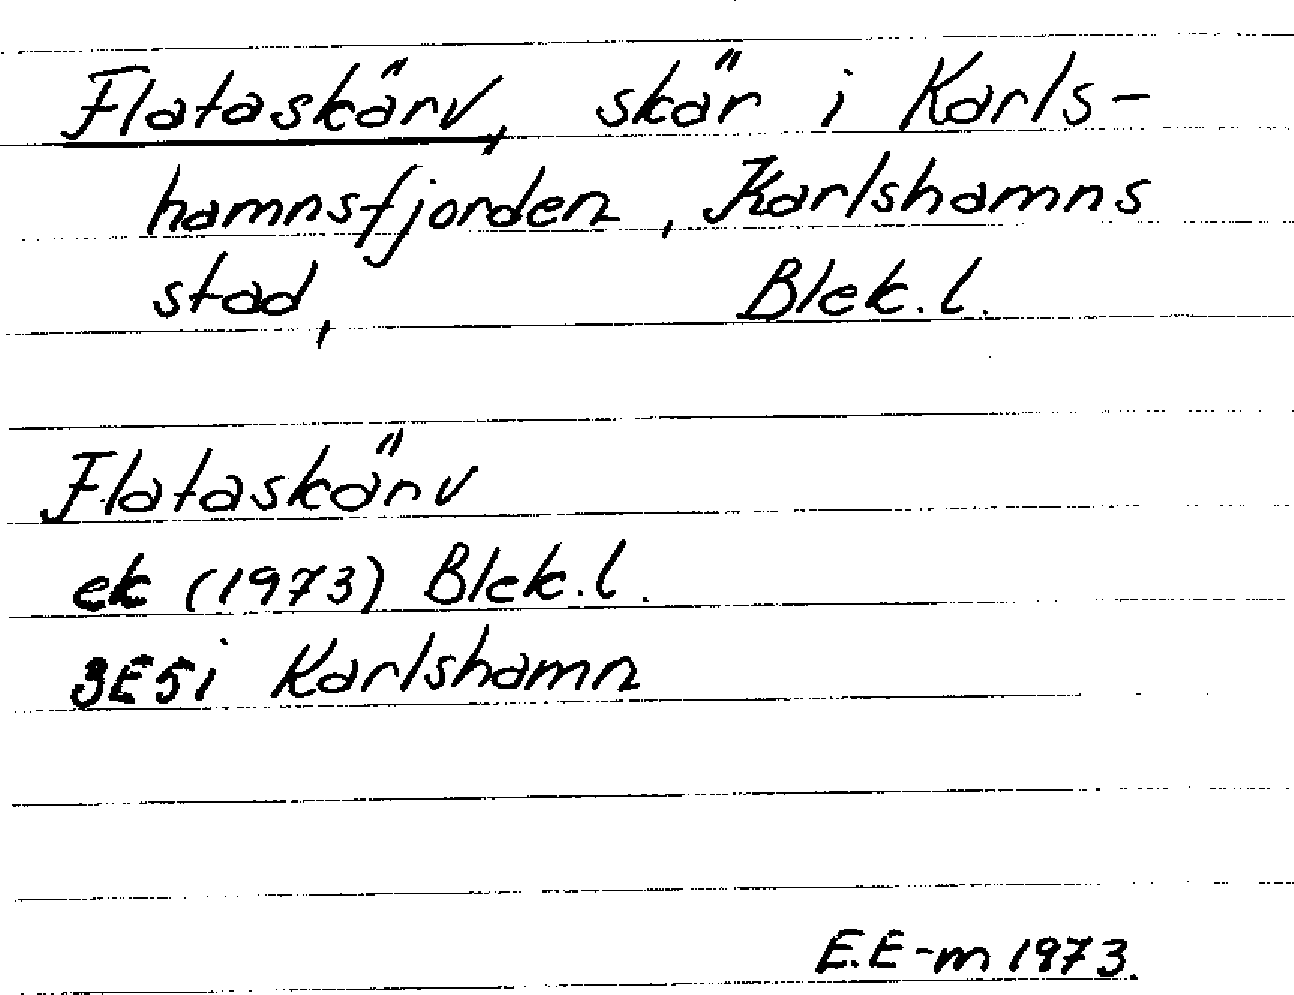 Flataskärv, skär i Karls-
hamnsfjorden, Karlshamns
stad, Blek.l.
Flataskärv
ek (1973) Blek.l.
3E5i Karlshamn
E.E-m 1973.